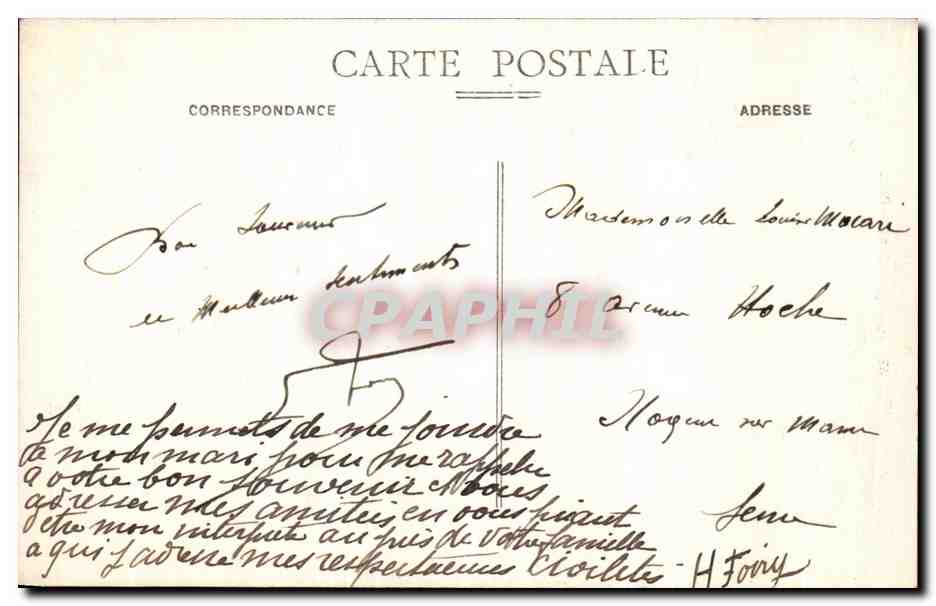 CARTE POSTALE
CORRESPONDANCE
ADRESSE
Bon Souvenir
et Meilleurs Sentiments
Mademoiselle Louise Macari
8 avenue Hoche
Nogent sur Marne
Seine
Je me permets de me joindre
a mon mari pour me rappeler
a votre bon souvenir et vous
adresser mes amities en vous priant
detre mon interprete au près de votre famille
a qui j'adresse mes respectueuses civilités
H Foiry
CPAPHIL